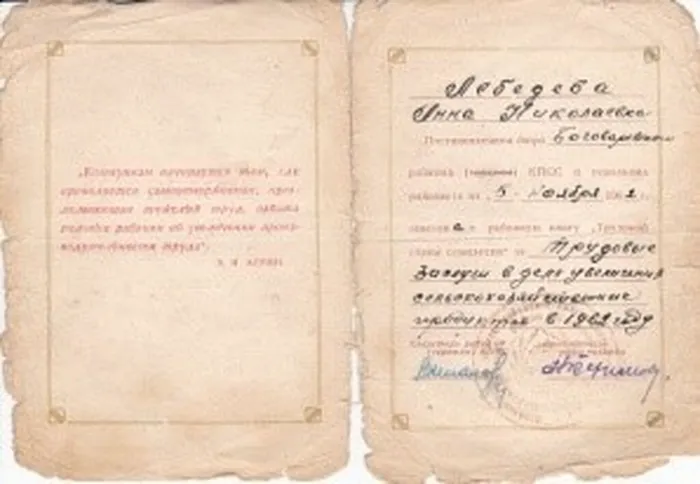 „Коммунизм начинается там, где
проявляется самоотверженная, прео-
долевающая тяжелый труд, забота
рядовых рабочих об увеличении произ-
водительности труда".
В. И. ЛЕНИН.
Лебедева
Анна Николаевна
Постановлением бюро Боговаровского
райкома КПСС и исполкома
райсовета от „5" ноября 1962 г.
занесена в районную книгу „Трудовой
славы за
Трудовые
заслуги в деле увеличения
сельскохозяйственные
продуктов в 1962 году
Секретарь райкома